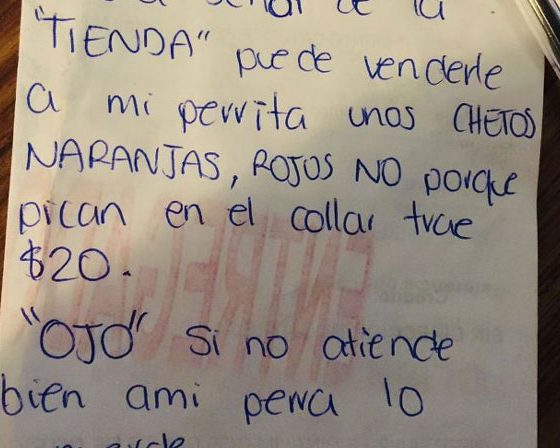 señor de la
"TIENDA" puede venderle
a mi perrita unos CHETOS
NARANJAS, ROJOS NO porque
pican en el collar trae
$20.
"OJO" si no atiende
bien ami perra lo
muerde
ENTREGADO